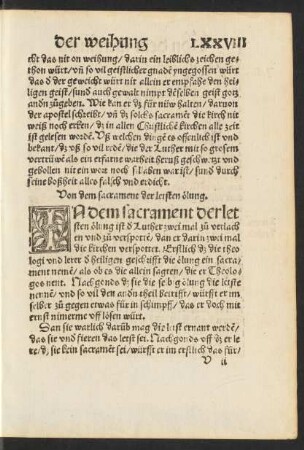 der weihung LXXVIII
cht das nit on weihung/ darin ein leiblichs zeichen ge-
thon würt/ vñ so vil geistlicher gnadẽ yngegossen würt
das d der geweicht würt nit allein er empfahe den hei-
ligen geist/ sund auch gewalt nimpt dẽselben geist gotz
andn zůgeben. Wie kan er dz für nüw halten/ daruon
der apostel schreibt/ vñ dz solchs sacramẽt die kirch nit
weiß noch erkẽn/ dz in allen Christlichẽ kirchen alle zeit
ist gelesen wordẽ. Vß welchen dingẽ es offenlich ist vnd
bekant/ dz vß so vil redẽ/ die der Luther mit so grossem
vertrüwẽ als ein erfarne warheit heruß geschwetzt vnd
gebollen nit ein wort noch silaben war ist/ sund durch
seine boßheit alles falsch vnd erdicht.
Von dem sacrament der letsten ölung.
IN dem sacrament der let
sten ölung ist d Luther zwei mal zů verlach
en vnd zů verspotẽ/ dan er darin zwei mal
die kirchen verspottet. Erstlich dz die theo
logi vnd lerer d heiligen geschrifft die ölung ein sacra-
ment nenẽ/ als ob es die allein sagten/ die er Theolo-
gos nent. Nachgonds dz sie die selbig ölung die letste
nennẽ/ vnd so vil den andn theil betrifft/ würfft er im
selber zů gegen etwas für in schimpff/ das er doch mit
ernst nimerme vff lösen würt.
Dan sie warlich darũb mag die letst ernant werdẽ/
das sie vnd fieren das letst sei. Nachgonds vff dz er le
re/ dz sie kein sacramẽt sei/ würfft er im erstlich das für/
V ii